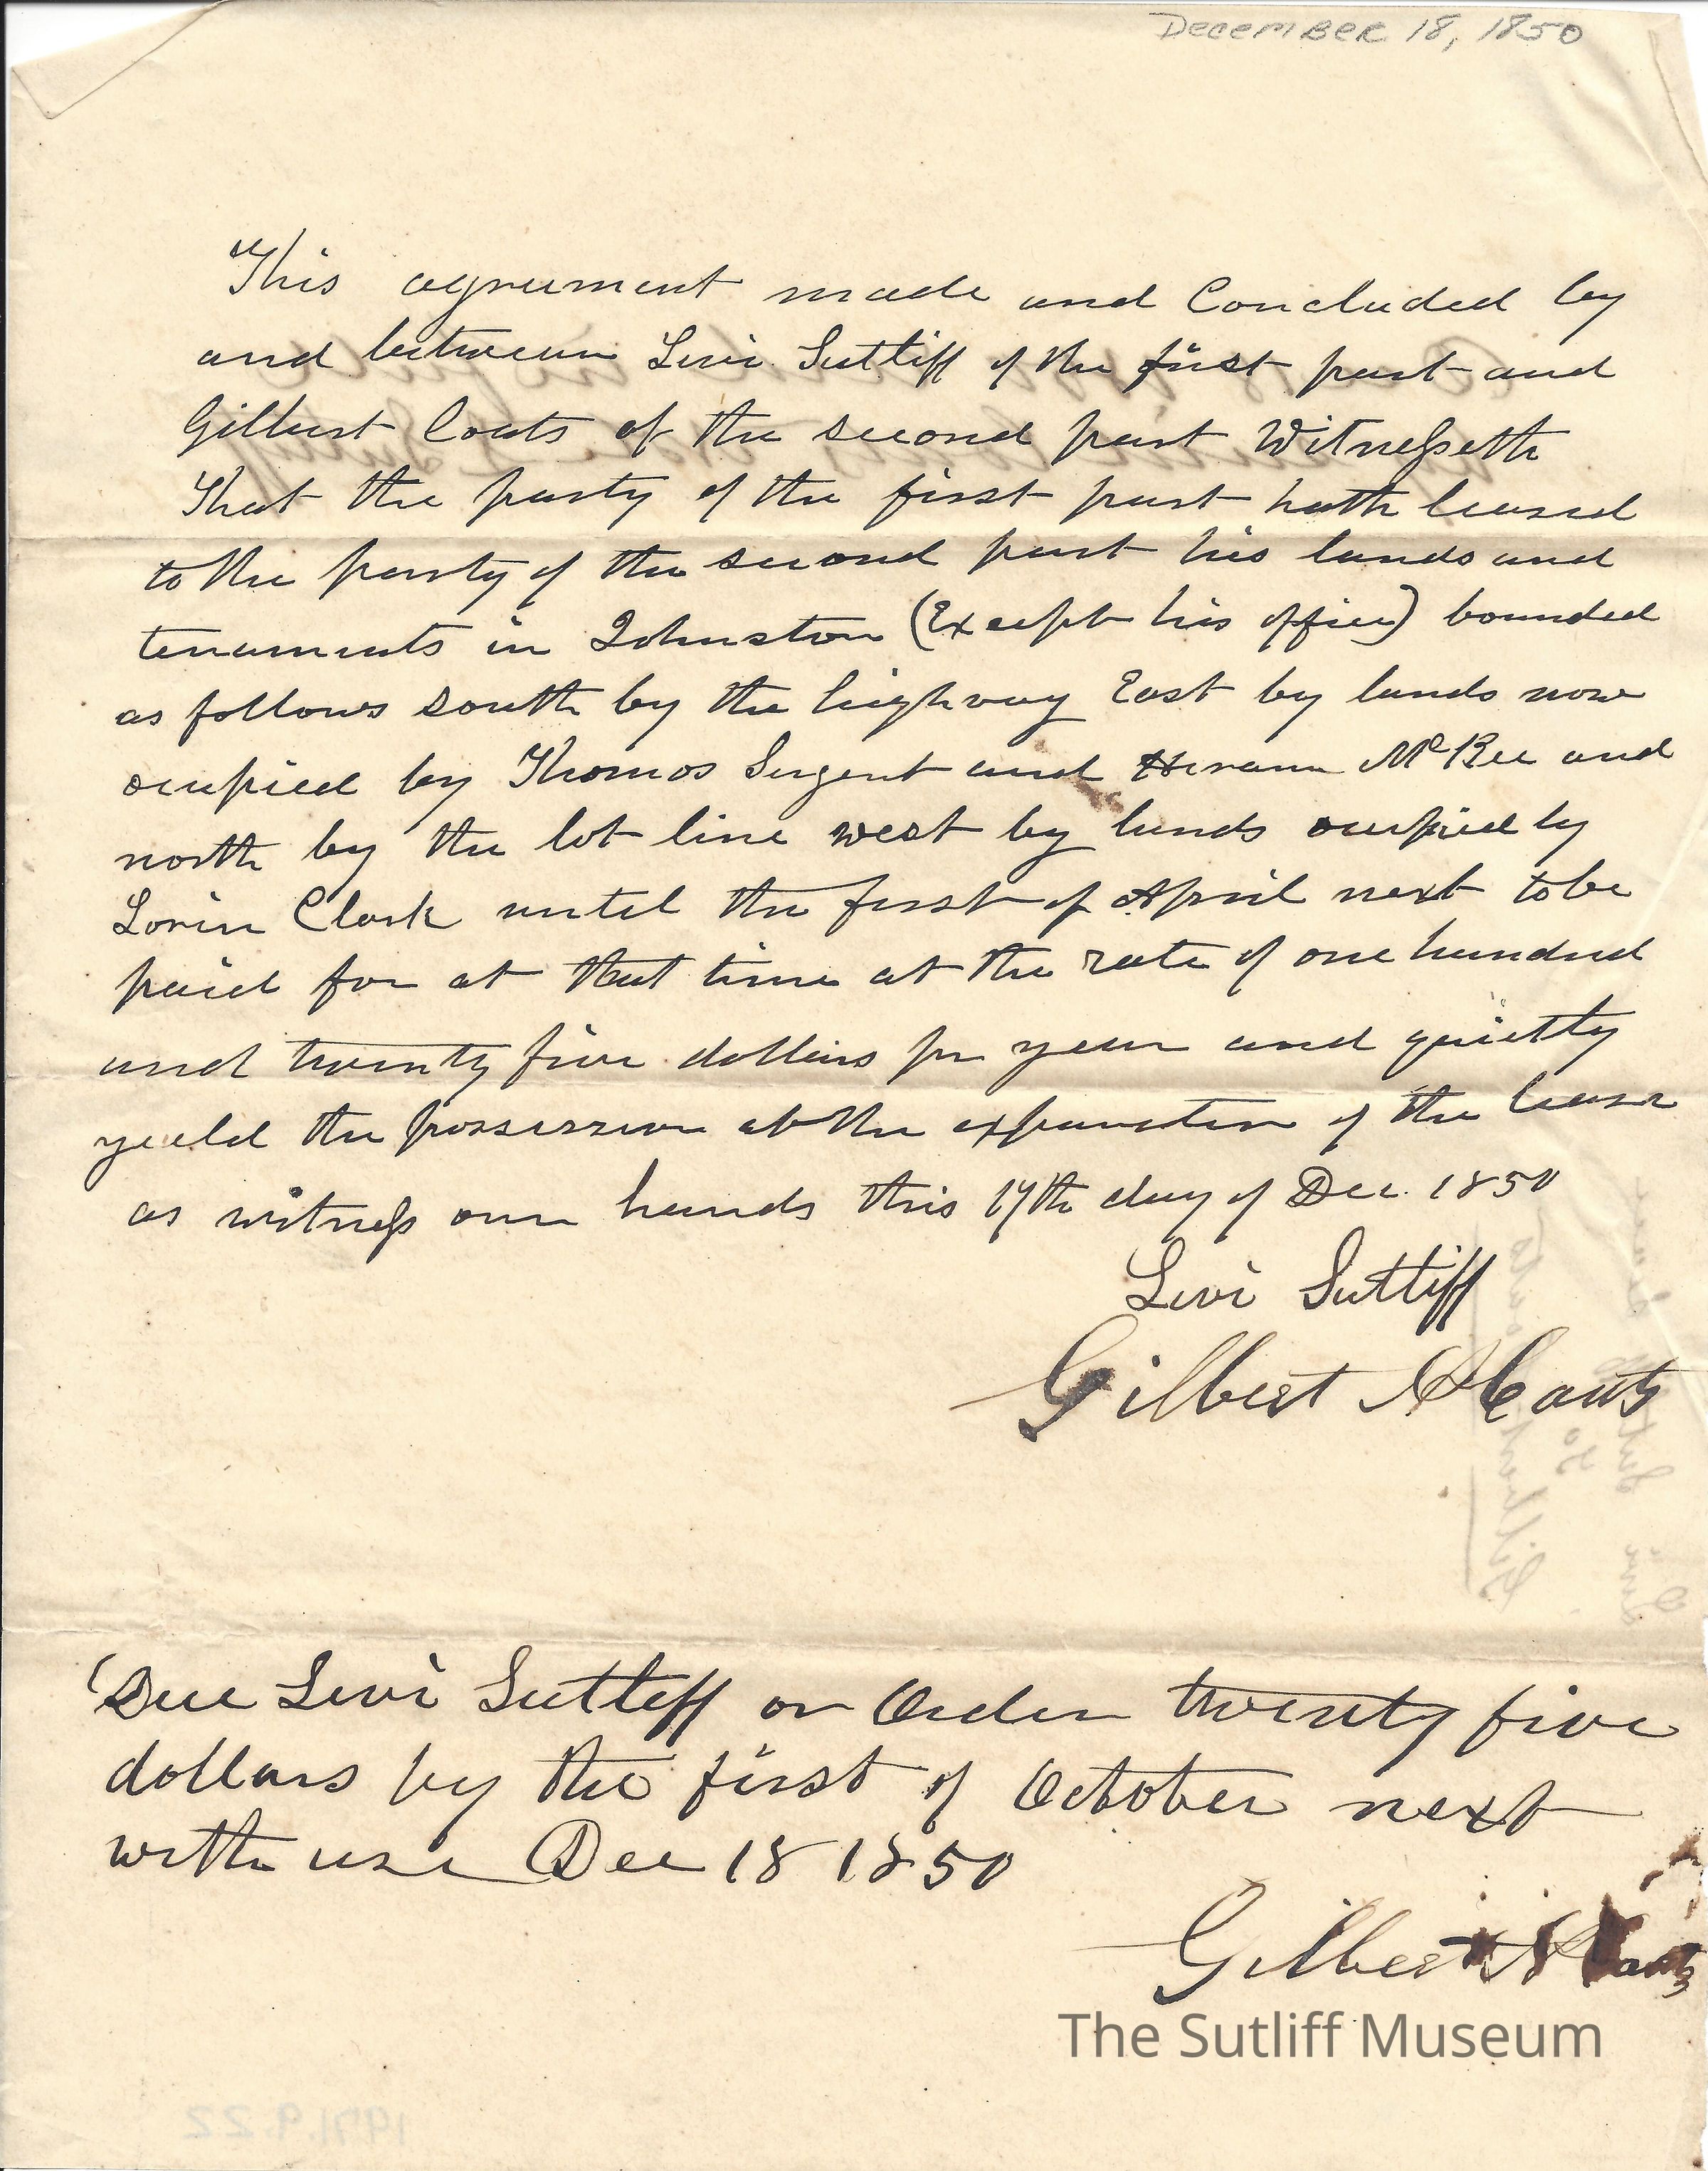 December 18, 1850
This agreement made and Concluded by
and between Levi Sutliff of the first part and
Gilbert Coats of the second part Witnesseth
That the party of the first part hath leased
to the party of the second part his lands and
tenaments in Johnston (Except his office) bounded
as follows south by the highway East by lands now
ocupied by Thomas Sergent and Hiram McKee and
north by the lot line west by lands ocupied by
Lorin Clark until the first of April next to be
paid for at that time at the rate of one hundred
and twenty five dollars pr year and quietly
yeald the possession at the expiration of the lease
as witness our hands this 17th day of Dec. 1850
Levi Sutliff
Gilbert A Coats
Due Levi Sutliff or Order twenty five
dollars by the first of October next
with use Dec 18 1850
Gilbert A Coats
The Sutliff Museum
1971.9.22